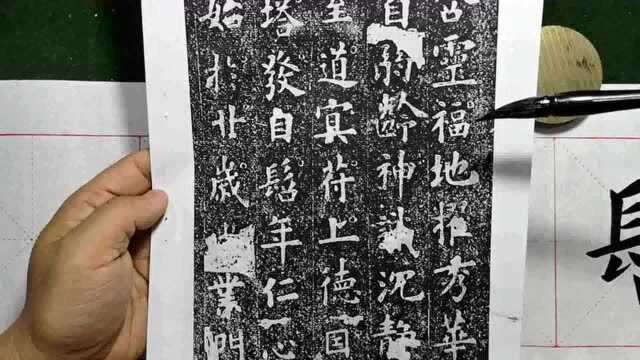 靈福地擢秀華
自弱齡神識沈靜
至道冥符上德因
塔發自髫年仁心
始於廿歲業門